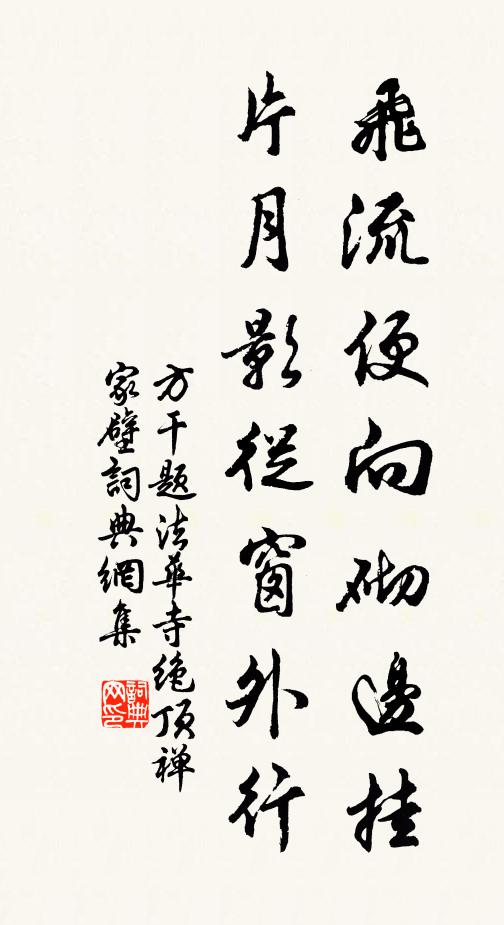 飛流便向砌邊挂
片月影從窗外行
方干题法華寺绝顶禅
家壁詞典網集
詞典
网印